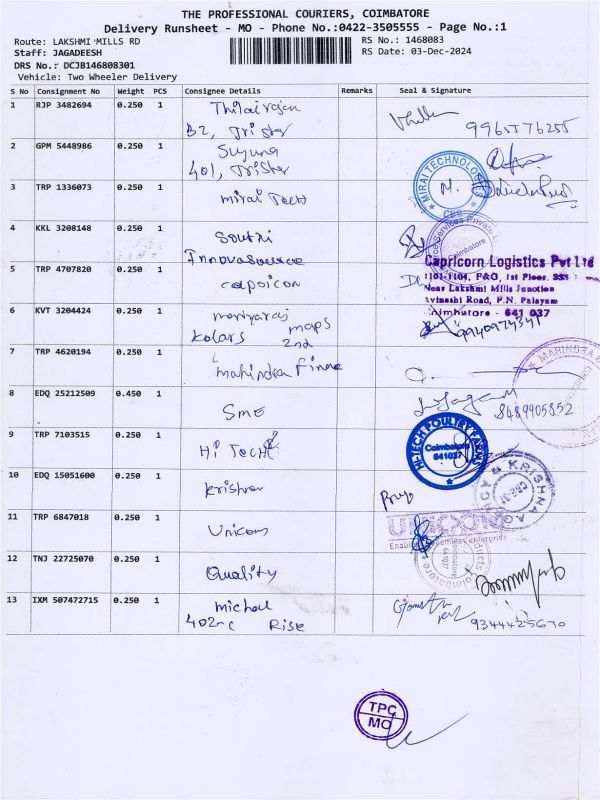 THE PROFESSIONAL COURIERS, COIMBATORE
Delivery Runsheet - MO - Phone No.:0422-3505555 - Page No.:1
Route: LAKSHMI MILLS RD
RS No.: 1468083
Staff: JAGADEESH
RS Date: 03-Dec-2024
DRS No.: DCJB146808301
Vehicle: Two Wheeler Delivery
S No Consignment No Weight PCS Consignee Details Remarks Seal & Signature
1 RJP 3482694 0.250 1 Thilairajan
B2, Trister 9965576255
2 GPM 5448986 0.250 1 Suguna
401, Trister
3 TRP 1336073 0.250 1 mirai Tech
MIRAI TECHNOLOGIES
CBE
4 KKL 3208148 0.250 1 Soutri
Innovasource
Services Private
Coimbatore
5 TRP 4707820 0.250 1 capricon
Capricorn Logistics Pvt Ltd
1101-1104, F&G, 1st Floor, 331
Near Lakshmi Mills Junction
Avinashi Road, P.N. Palayam
Coimbatore - 641 037
6 KVT 3204424 0.250 1 mariyaraj
Kolars maps
2nd
7 TRP 4620194 0.250 1 mahindra Finance
MAHINDRA &
8 EDQ 25212509 0.450 1 SME
8489905852
9 TRP 7103515 0.250 1 Hi Tech
HI-TECH POULTRY FARMS
Coimbatore
641037
10 EDQ 15051600 0.250 1 Krishna
KRISHNA AGENCY &
11 TRP 6847018 0.250 1 Unicom
UNICOM
12 TNJ 22725070 0.250 1 Quality
Products
Coimbatore
641037
13 IXM 507472715 0.250 1 michael
402-C Rise 9344425670
TPC
MO